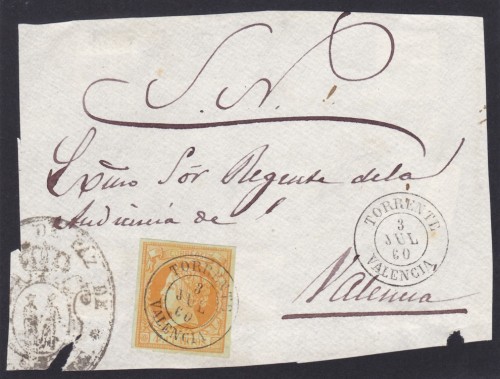 S. N.
Exmo Sór Regente de la
Audiencia de
Valencia
TORRENTE
3
JUL
60
VALENCIA
TORRENTE
3
JUL
60
VALENCIA
PAZ DE